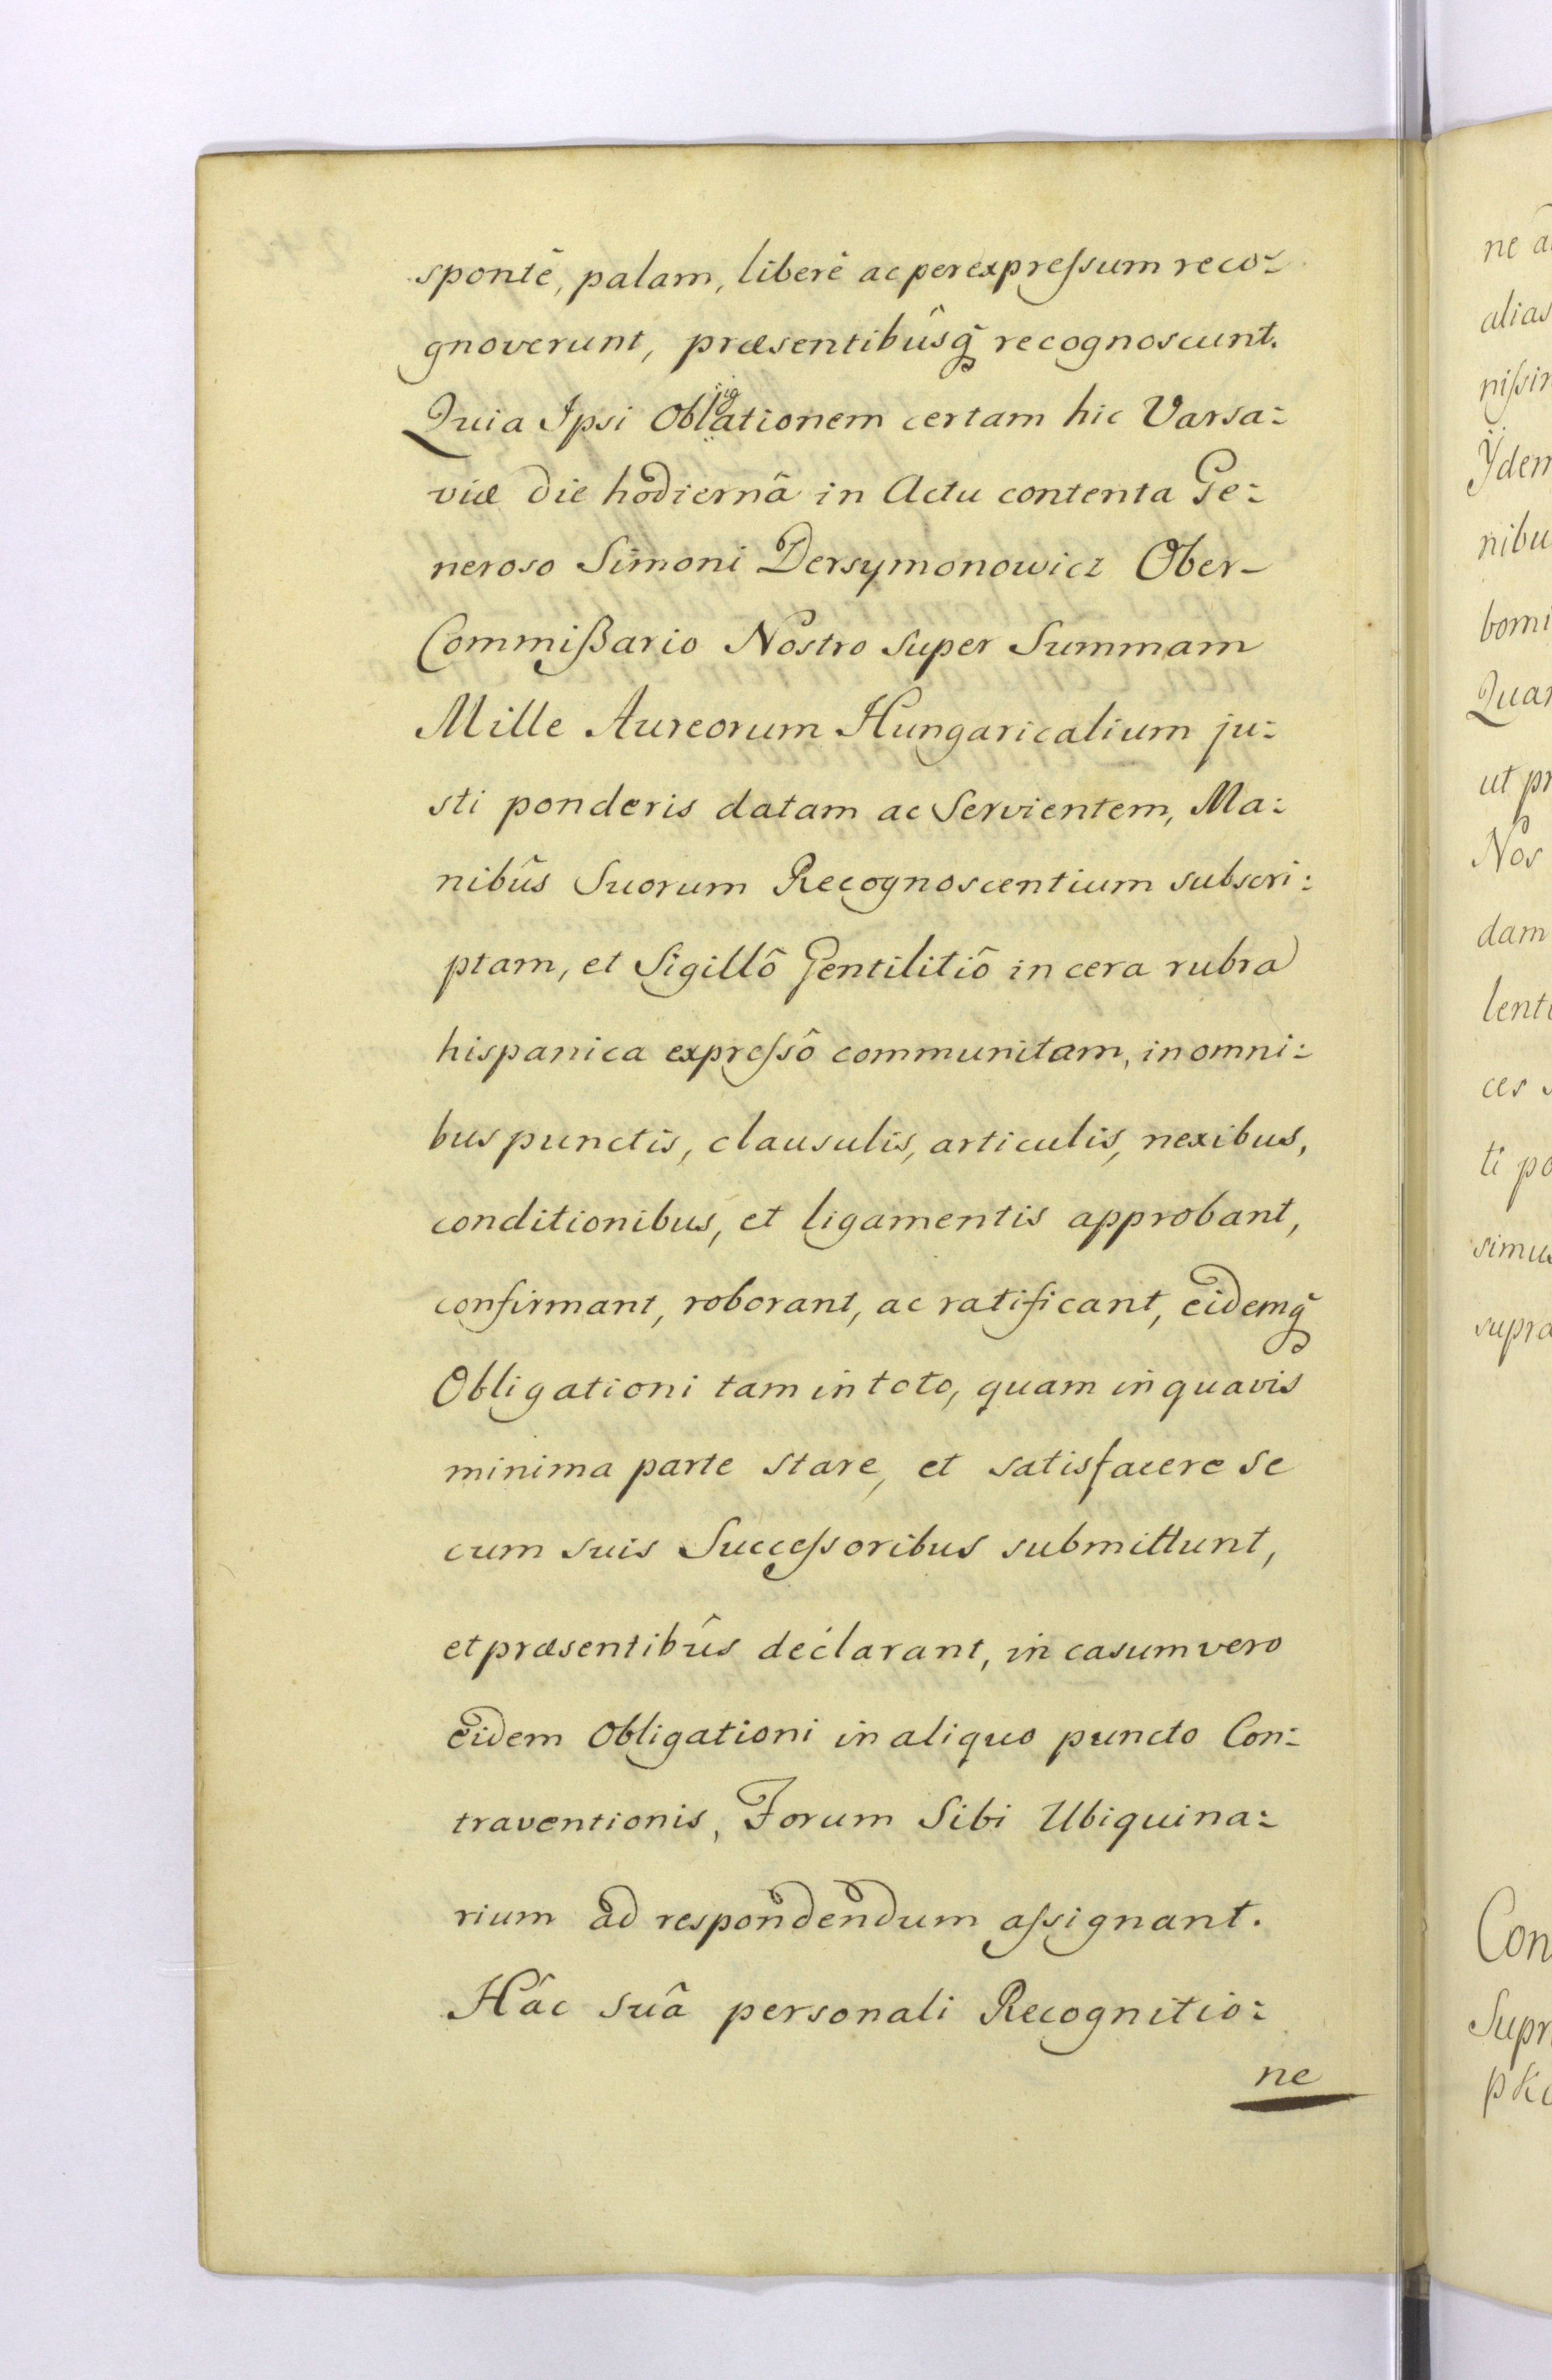 spontè, palam, liberè ac per expreſsum reco=
gnoverunt, præsentibûsq̃ recognoscunt.
Quia Ipsi Obligationem certam hic Varsa=
viæ die hodiernâ in Actu contenta Ge=
neroso Simoni Dersymonowicz Ober-
Commißario Nostro super Summam
Mille Aureorum Hungaricalium ju=
sti ponderis datam ac Servientem, Ma=
nibûs Suorum Recognoscentium subscri=
ptam, et Sigillô Gentilitiô in cera rubra
hispanica expreſsô communitam, in omni=
bus punctis, clausulis, articulis, nexibus,
conditionibus, et ligamentis approbant,
confirmant, roborant, ac ratificant, eidemq̃
Obligationi tam in toto, quam in quavis
minima parte stare, et satisfacere se
cum suis Succeſsoribus submittunt,
et præsentibûs declarant, in casum vero
eidem Obligationi in aliquo puncto Con=
traventionis, Forum Sibi Ubiquina=
rium ad respondendum aſsignant.
Hâc suâ personali Recognitio=
ne
ne
alias
ut
Nos
dam
ces